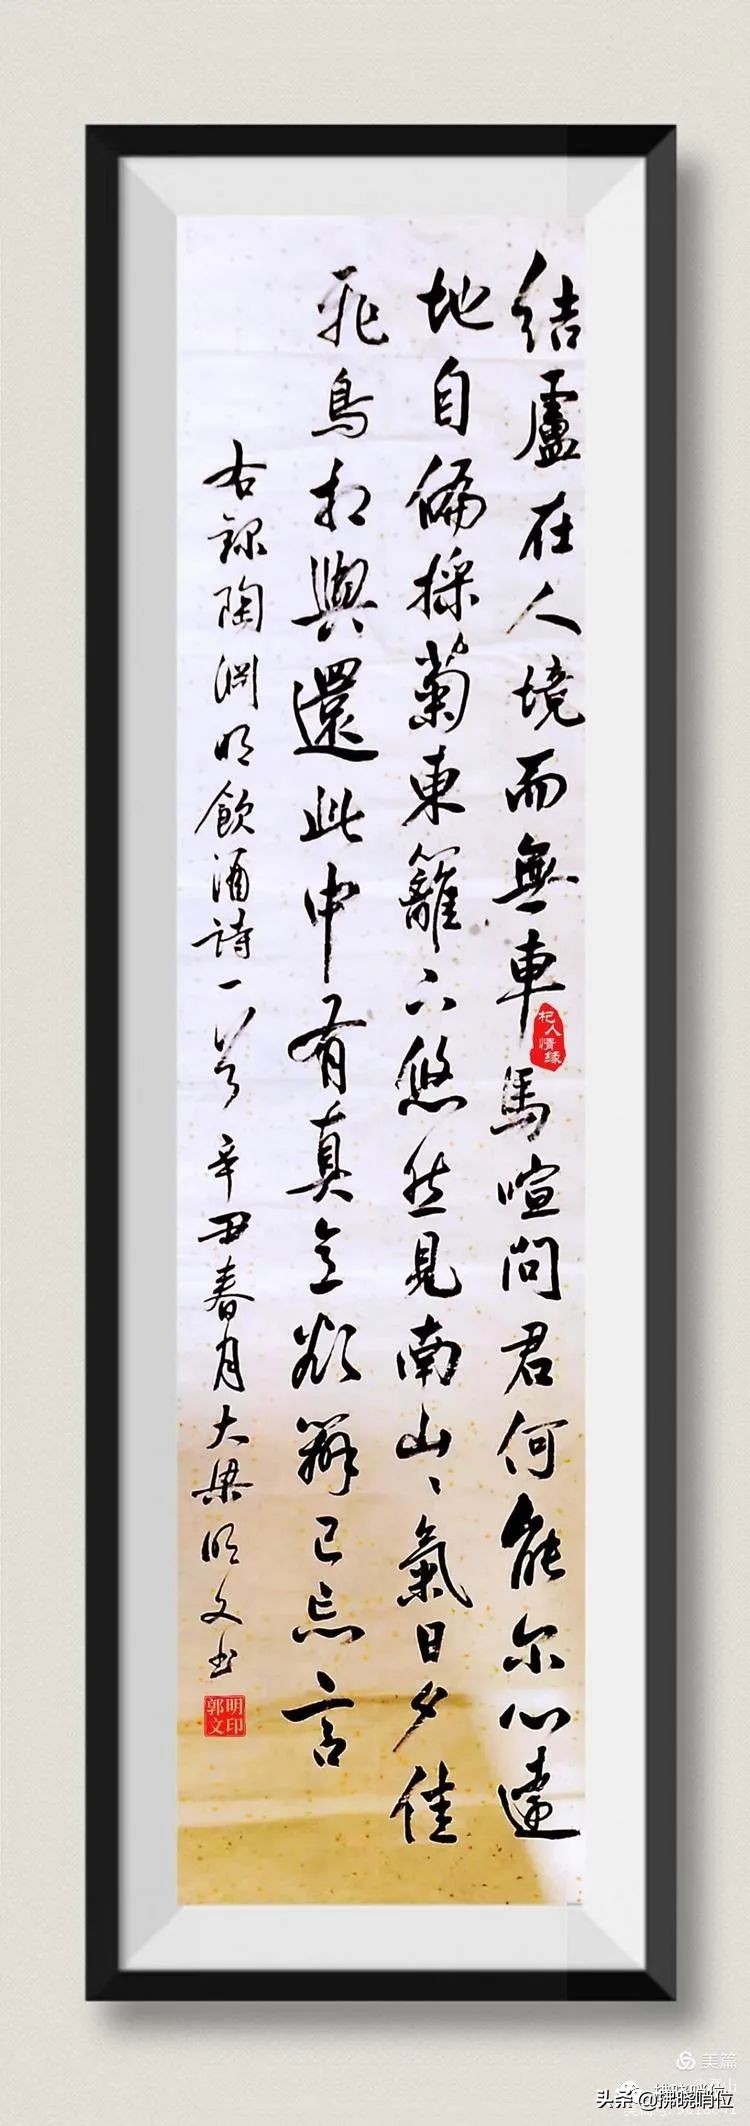 结盧在人境而無車馬喧問君何能尔心遠
地自偏採菊東籬下悠然見南山、氣日夕佳
飛鳥相與還此中有真意欲辨已忘言
右録陶渊明飲酒诗一首辛丑春月大梁明文书
杞人情缘
郭明文印
美篇
头条 @拂晓哨位